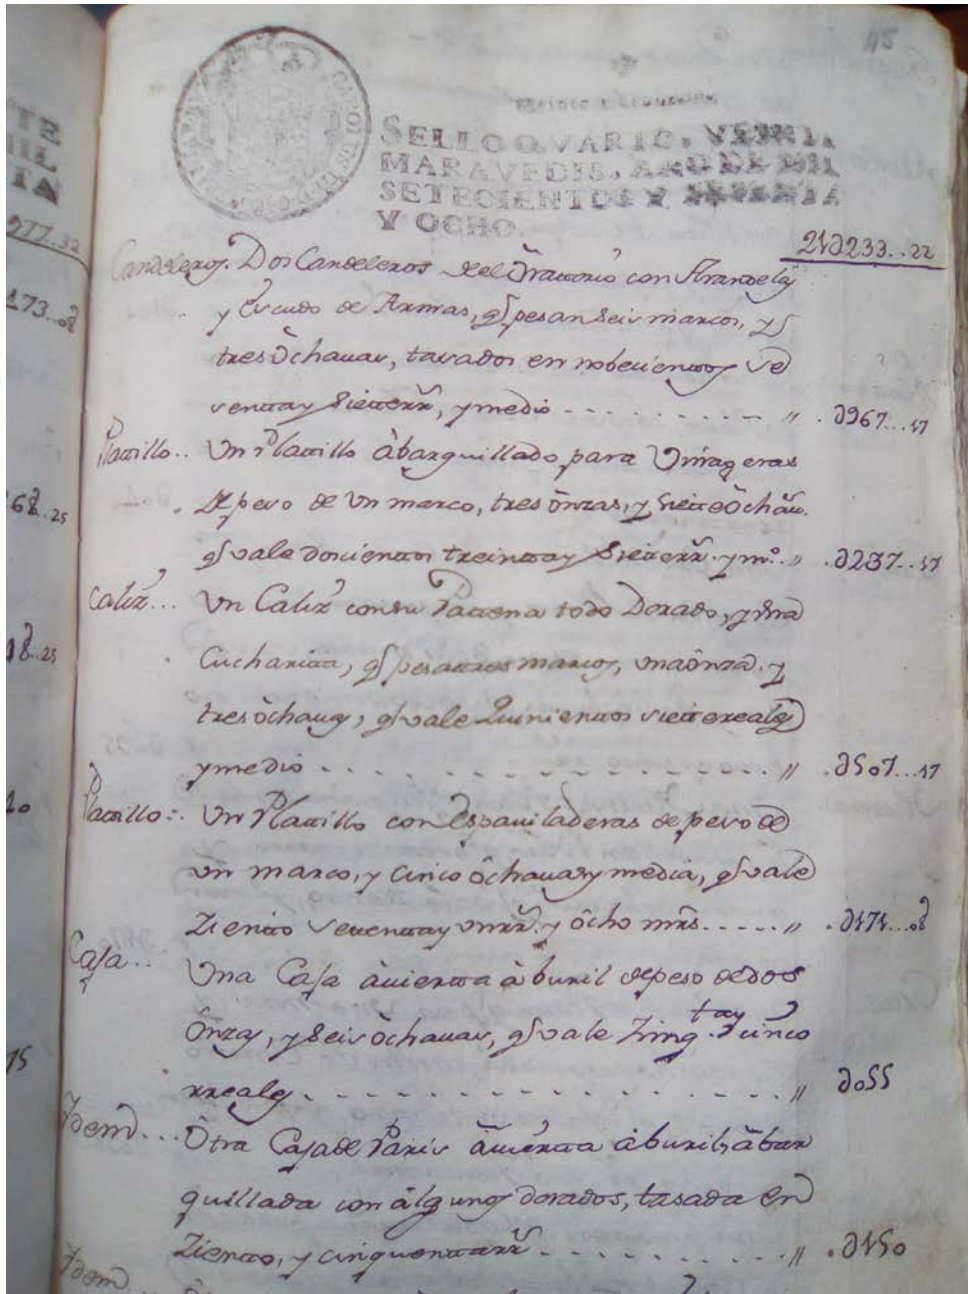 45
SELLO QVARTO, VEINTE
MARAVEDIS, AÑO DE MIL
SETECIENTOS Y SESENTA
Y OCHO.
21d233..22
Candeleros. Dos Candeleros del Oratorio con Arandelas
y Escudo de Armas, q̃ pesan seis marcos, y
tres ôchauas, tasados en nobecientos se
senttay siette rr̃, y medio - - - - - - - - " . d967...17
Plattillo.. Un Plattillo àbarquillado para Vinageras
de peso de Un marco, tres ônzas, y siette ôchau.
q̃ vale docienttos treinttay siette rr̃. y mº. " . d237..17
Caliz... Un Caliz con su Pattena todo Dorado, y una
Cucharitta, q̃ pesa ttres marcos, una ônza. y
tres ôchauas, q̃ vale Quinienttos siette reales
y medio - - - - - - - - - - - - " . d507...17
Plattillo:. Un Plattillo con Espaviladeras de peso de
un marco, y cinco ôchauas y media, q̃ vale
Zientto settenttay un rr̃. y ôcho mr̃s. - - - - " . d171...08
Caja.. Una Caja àuiertta à buril de peso de dos
Ônzas, y seis ôchauas, q̃ vale Zinq.ᵗᵃʸ cinco
rreales - - - - - - - - - - - - - - " d055
Idem... Ôtra Caja de Paris àuiertta à buril, àbar
quillada con àlgunos dorados, tasada en
Zientto, y cinquentta rr̃ - - - - - - - " . d150
Idem..
977..32
173..08
68..25
18..25